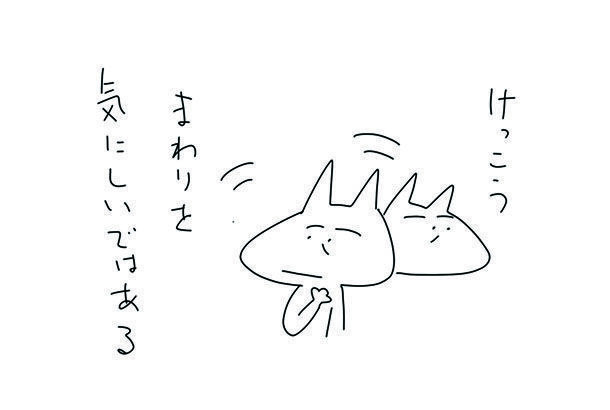 けっこう
まわりを
気にしいではある